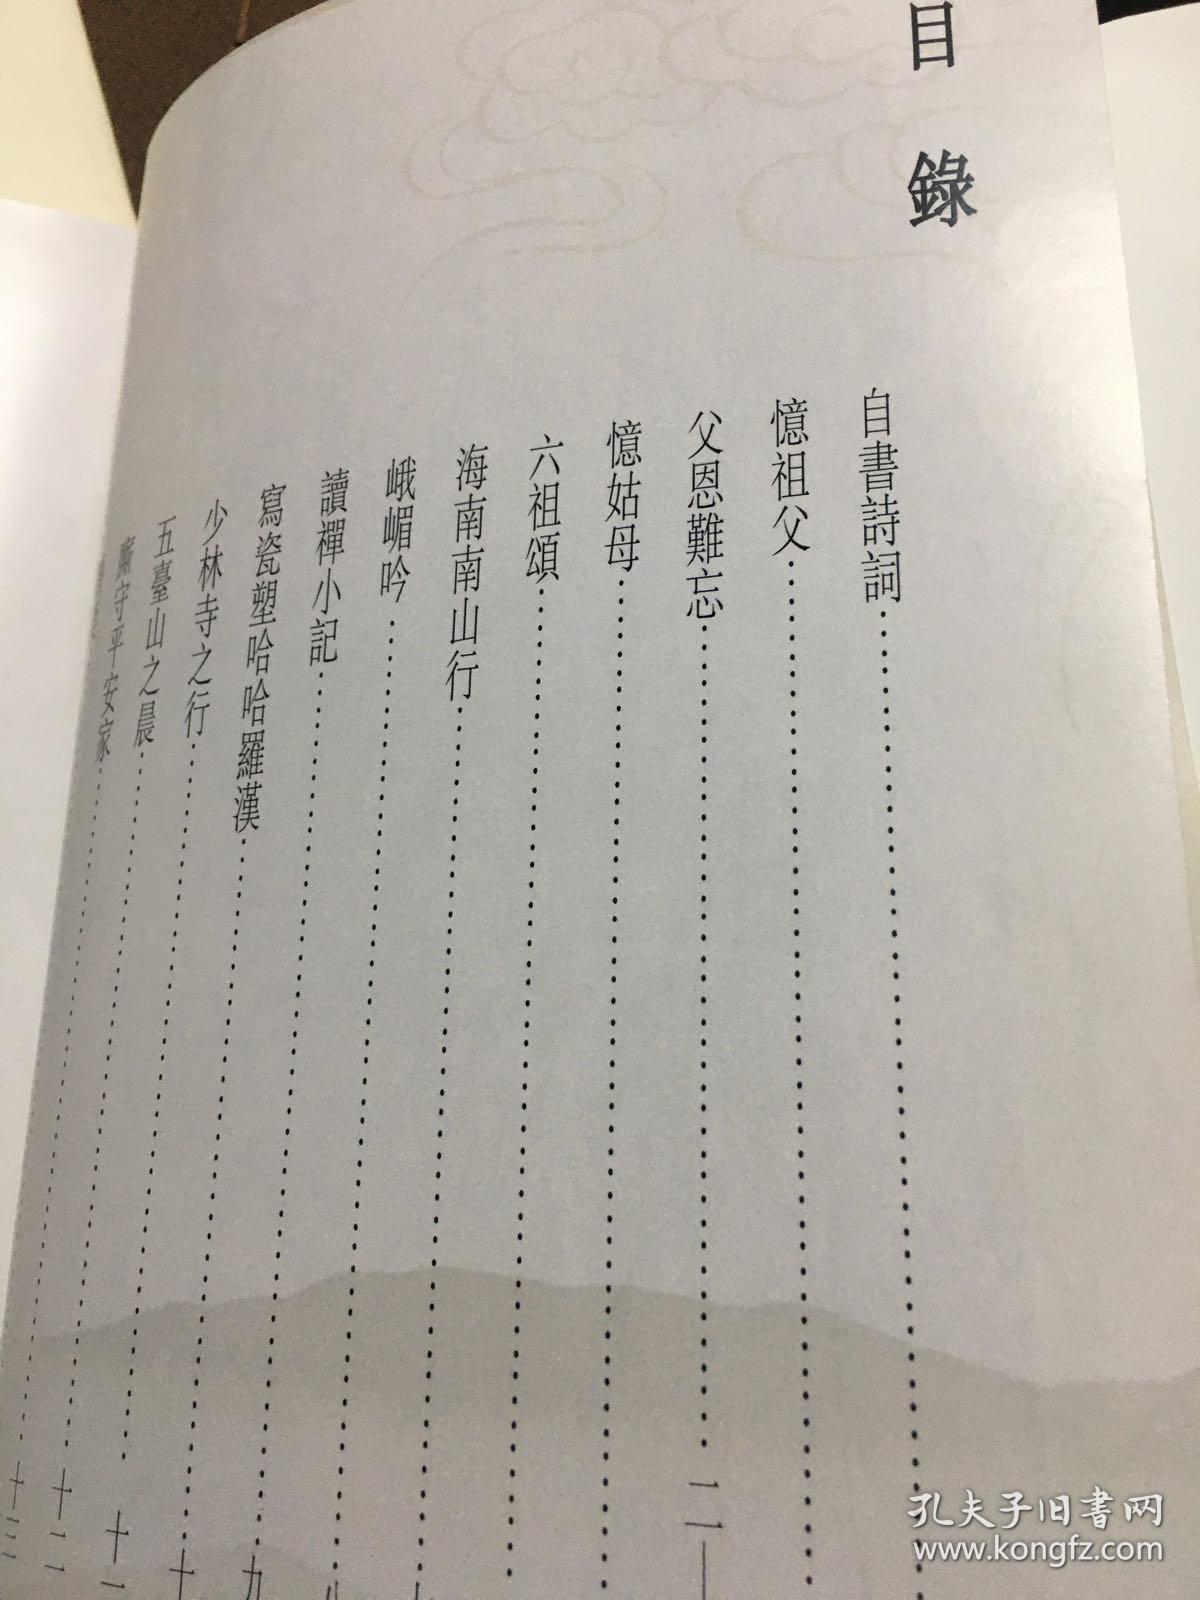 目錄
自書詩詞
憶祖父
父恩難忘 二一
憶姑母
六祖頌
海南南山行
峨嵋吟
讀禪小記 八
寫瓷塑哈哈羅漢 九
少林寺之行 十
五臺山之晨 十一
廉守平安家 十二
十三
孔夫子旧书网
www.kongfz.com